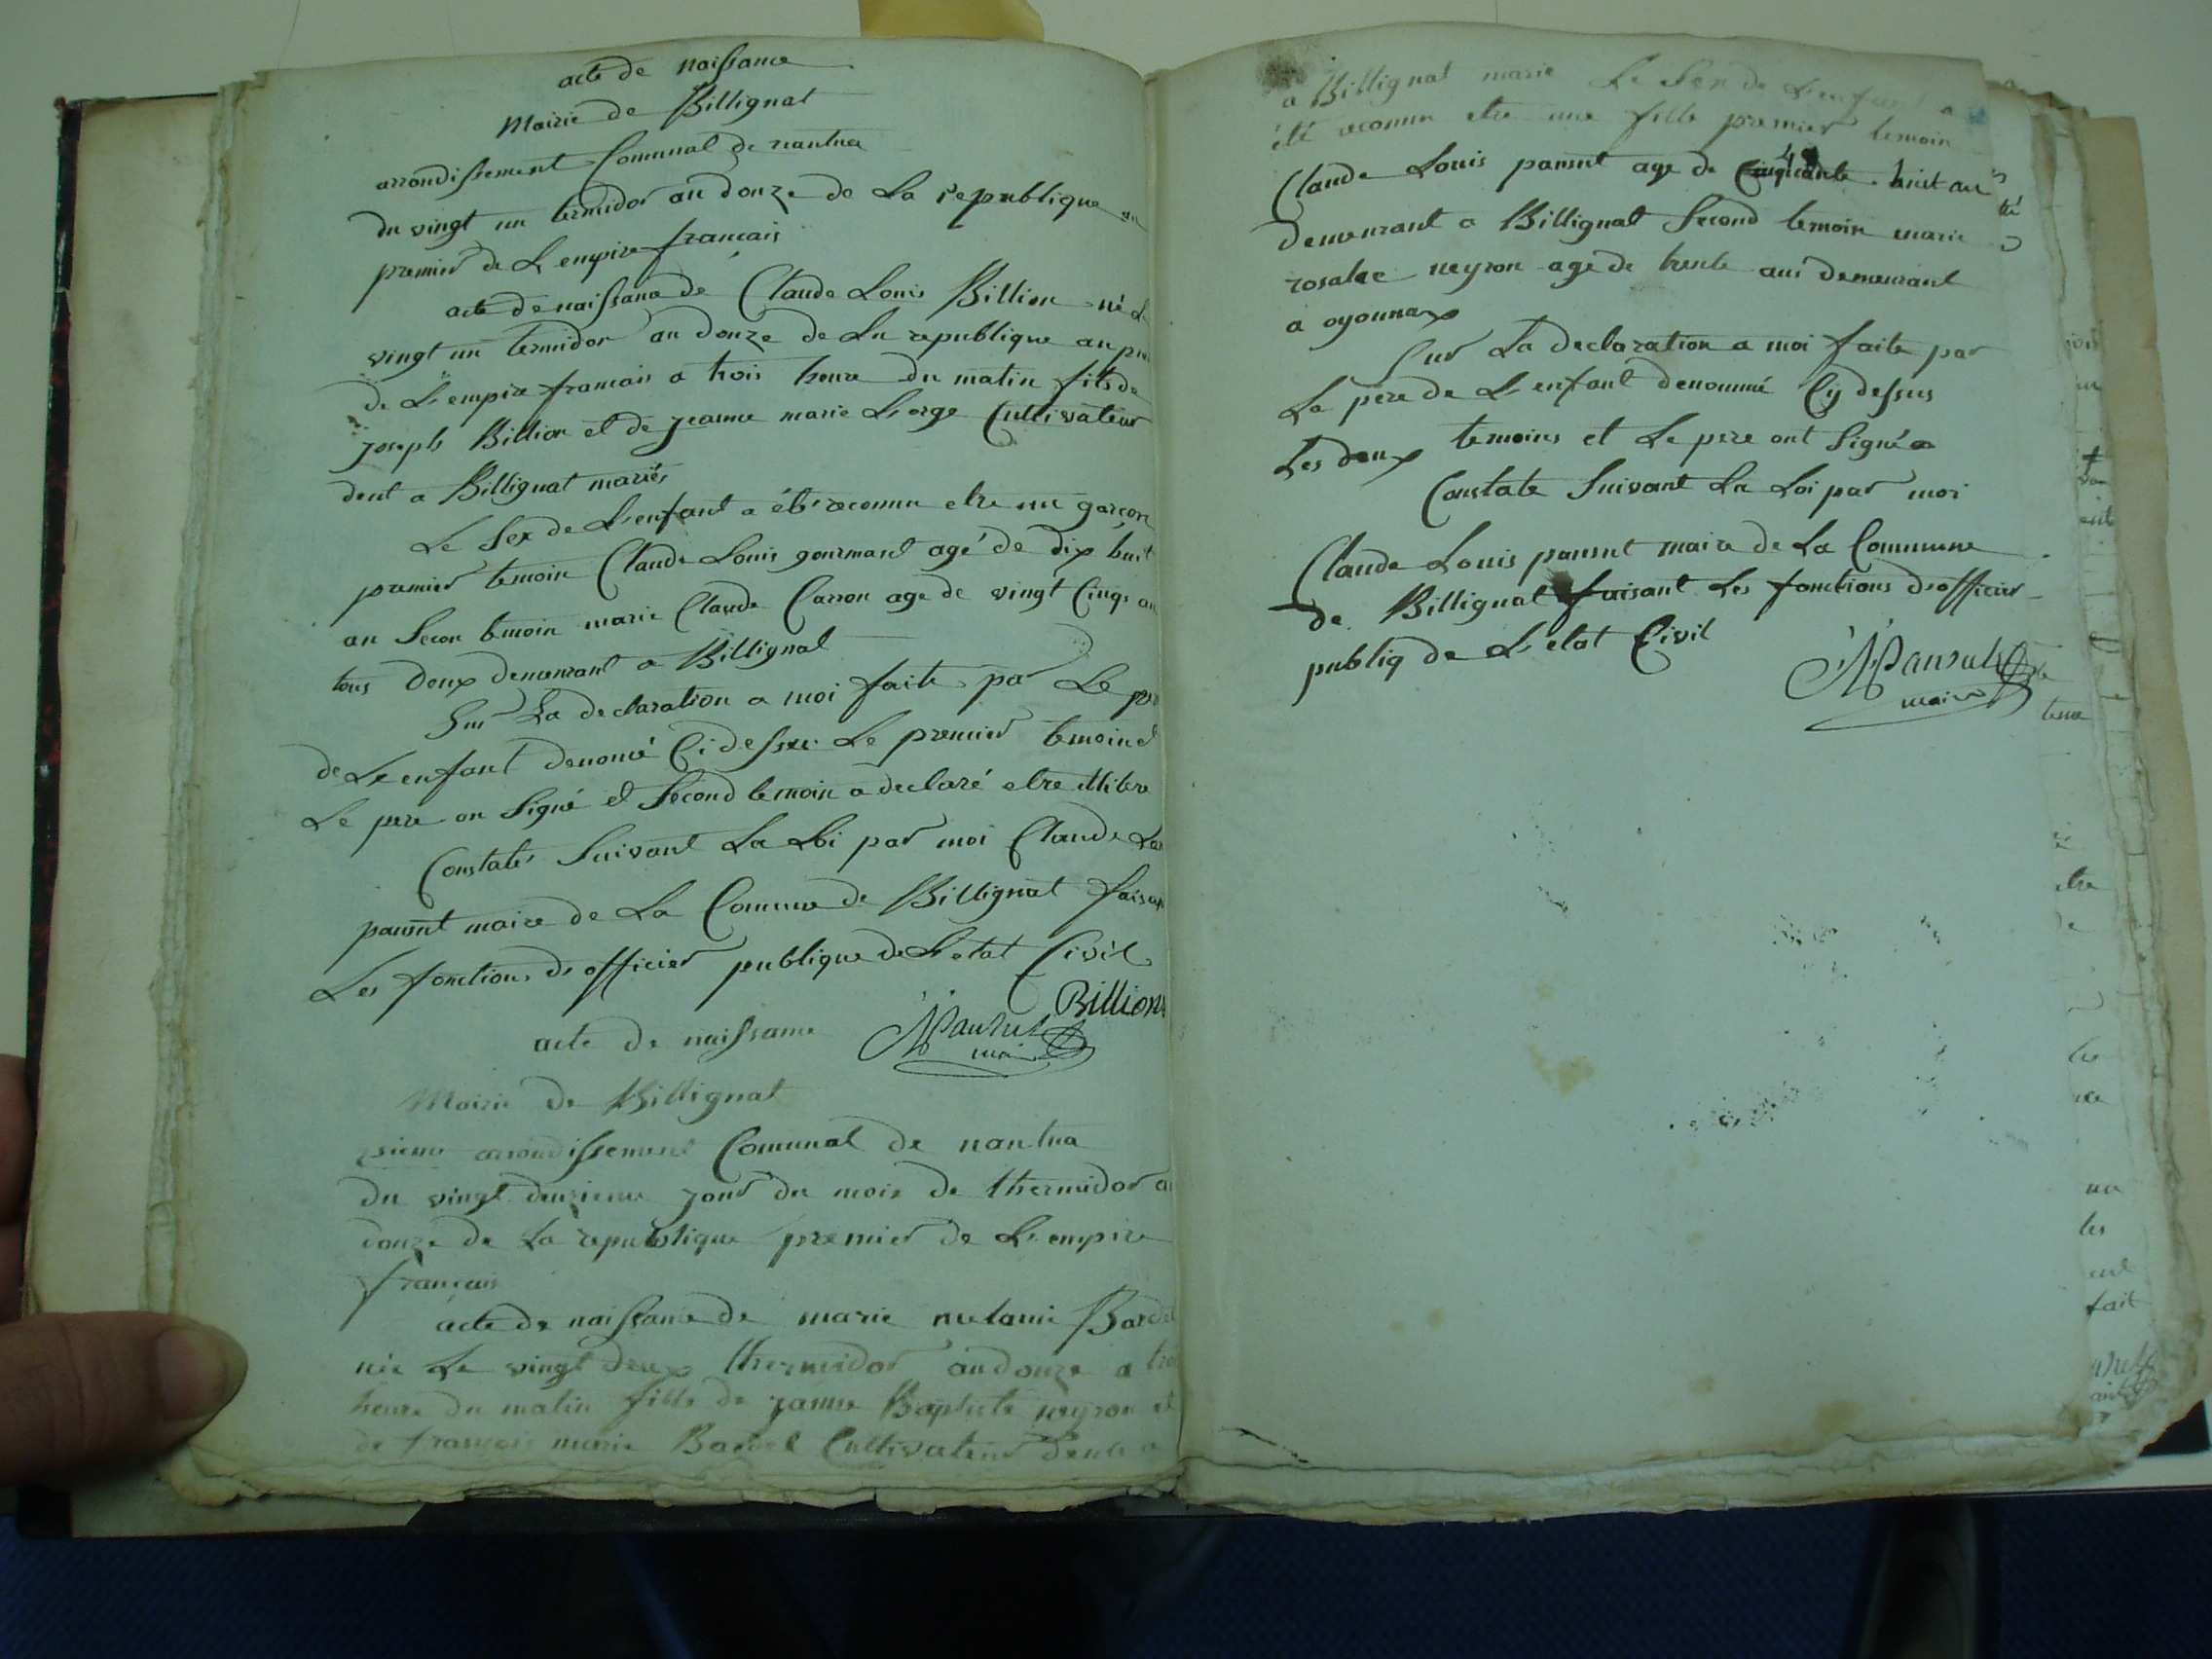 acte de naissance
Mairie de Billignat
arrondissement Communal de nantua
du vingt un termidor an douze de La republique an
premier de L'empire francais
acte de naissance de Claude Louis Billion né Le
vingt un termidor an douze de La republique an pre
de L'empire francais a trois heure du matin fils de
joseph Billion et de jeanne marie L'orge Cultivateur
dent a Billignat mariés
Le Sex de L'enfant a été reconnu etre un garcon
premier temoin Claude Louis gourmand agé de dix huit
an Secon temoin marie Claude Carron age de vingt Cinqs an
tous deux demeurant a Billignat
Sur La declaration a moi faite par Le pere
de L'enfant denomé Ci dessus Le premier temoin et
Le pere on Signé et Second temoin a declaré etre illitere
Constaté Suivant La Loi par moi Claude Lo
pansut maire de La Comune de Billignat faisan
Les fonctions d'officier publique de L'etat Civil
Billion
Pansut
maire
acte de naissance
Mairie de Billignat
arrondissement Comunal de nantua
du vingt deuxieme jour du mois de thermidor an
douze de La republique premier de L'empire
francais
acte de naissance de marie melanie Bardel
née Le vingt deux thermidor an douze a troi
heure du matin fille de janne Baptiste neyron et
de francois marie Bardel Cultivateur dent a
a Billignat marie Le Sex de L'enfant a
été reconnu etre une fille premier temoin
Claude Louis pansut age de Cinquante huit an
demeurant a Billignat Second temoin marie
rosalie neyron agé de trente ans demeurant
a oyonnax
Sur La declaration a moi faite par
Le pere de L'enfant denommé Cy dessus
Les deux temoins et Le pere ont Signé
Constate Suivant La Loi par moi
Claude Louis pansut maire de La Commune
de Billignat faisant Les fonctions d'officier
publiq de L'etat Civil
Pansut
maire